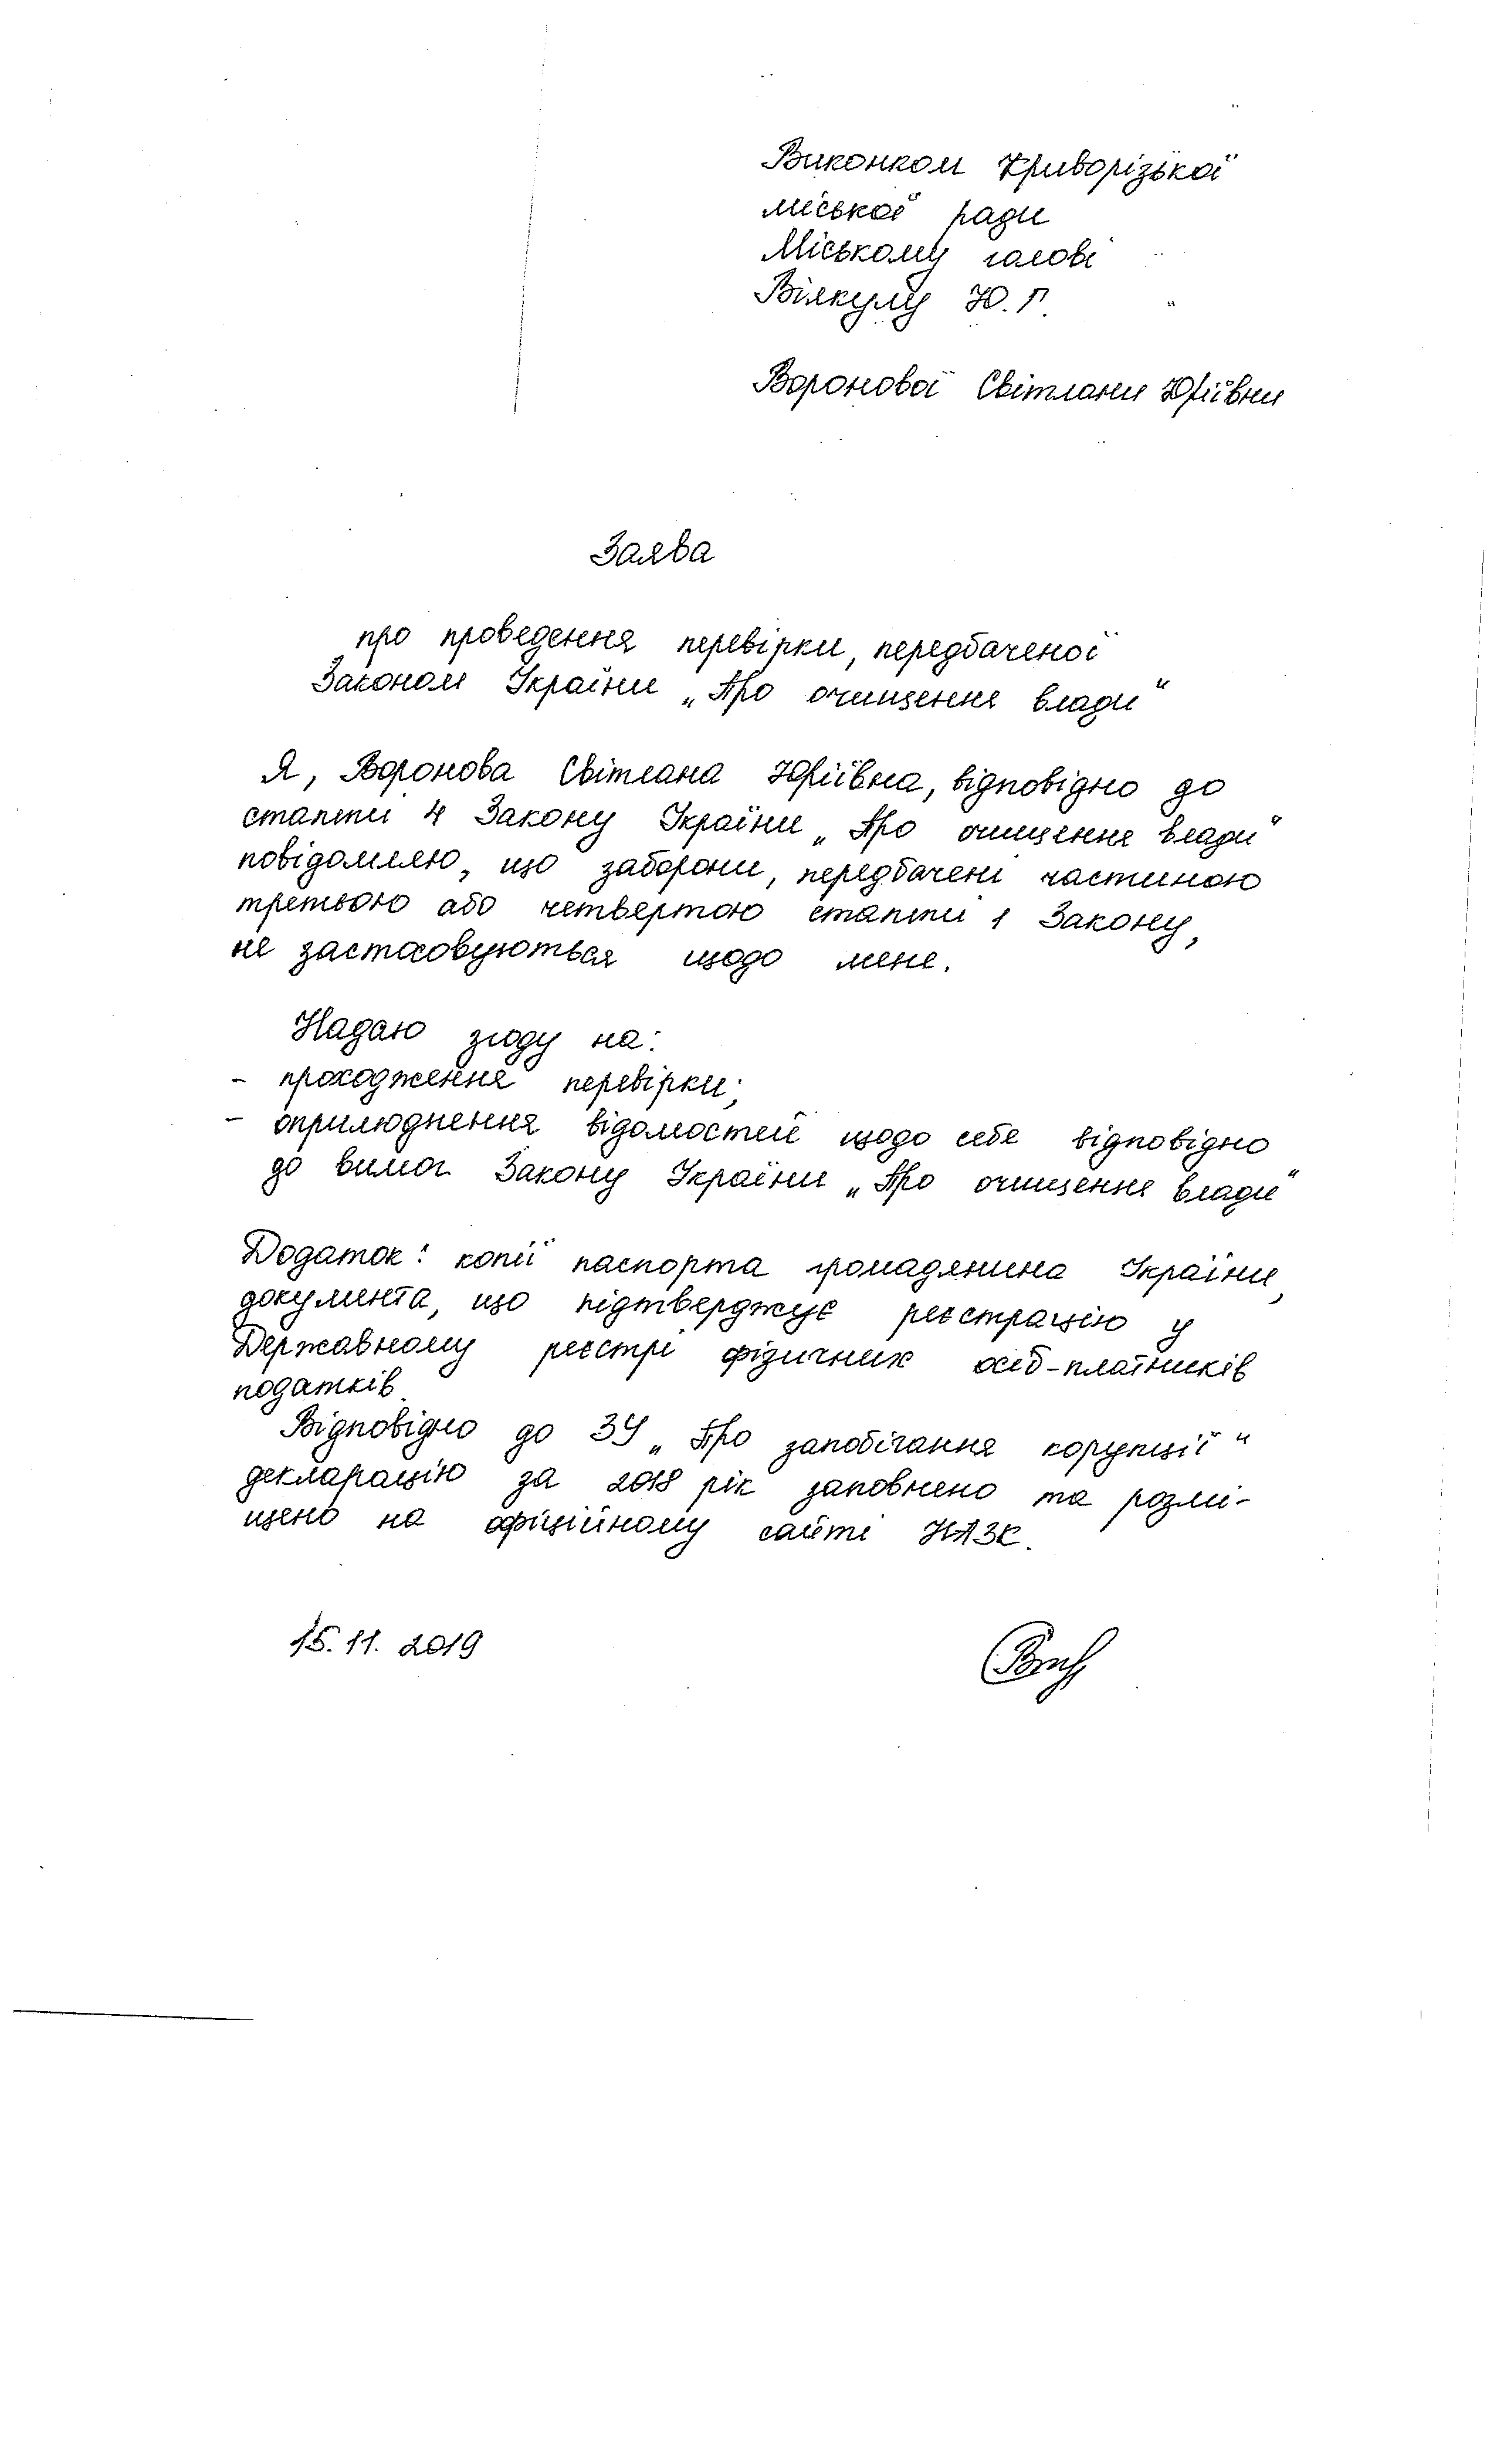 Виконком Криворізької
міської ради
Міському голові
Вілкулу Ю.Г.
Воронової Світлани Юріївни
Заява
про проведення перевірки, передбаченої
Законом України „Про очищення влади“
Я, Воронова Світлана Юріївна, відповідно до
статті 4 Закону України „Про очищення влади“
повідомляю, що заборони, передбачені частиною
третьою або четвертою статті 1 Закону,
не застосовуються щодо мене.
Надаю згоду на:
- проходження перевірки;
- оприлюднення відомостей щодо себе відповідно
до вимог Закону України „Про очищення влади“
Додаток: копії паспорта громадянина України,
документа, що підтверджує реєстрацію у
Державному реєстрі фізичних осіб-платників
податків.
Відповідно до ЗУ „Про запобігання корупції“
декларацію за 2018 рік заповнено та розмі-
щено на офіційному сайті НАЗК.
15.11.2019